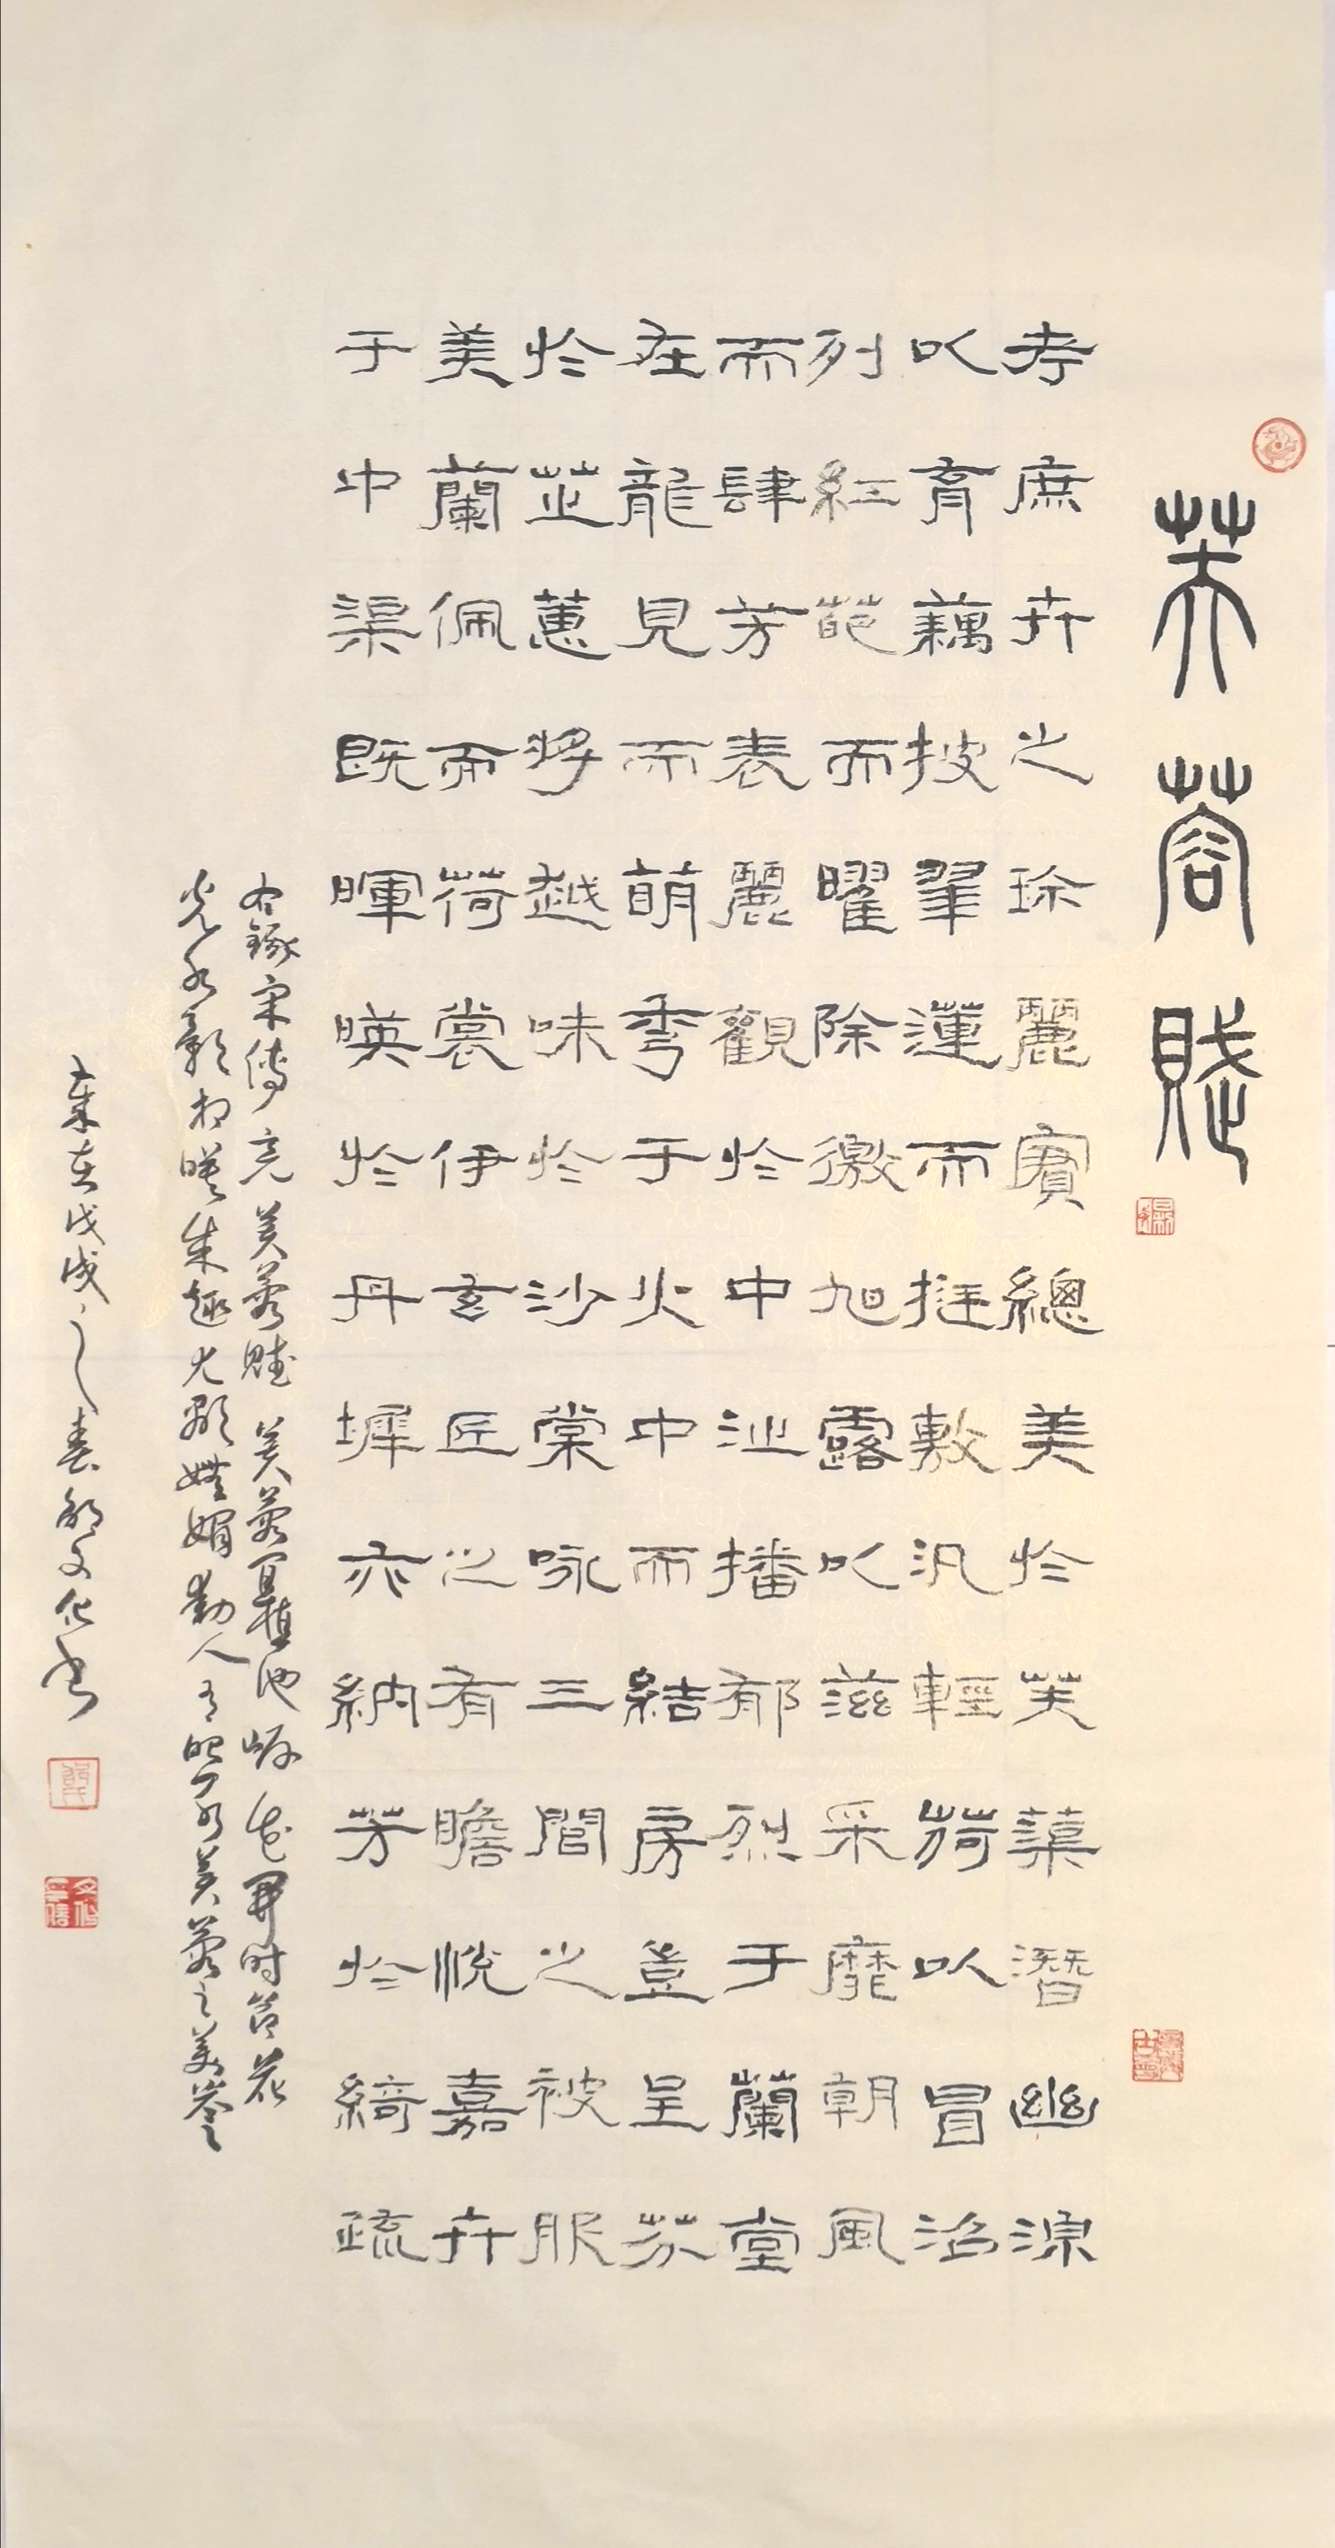 芙蓉賦
考庶卉之珍麗實總美於芙蕖潛幽涼
以育藕披翠蓮而挺敷汎輕荷以冒沼
列紅葩而曜除徼旭露以滋采靡朝風
而肆芳表麗觀於中沚播郁烈于蘭堂
在龍見而萌秀于火中而結房豈呈芬
於芷蕙將越味於沙棠咏三閭之被服
美蘭佩而荷裳伊玄匠之有瞻悅嘉卉
于中渠既暉暎於丹墀亦納芳於綺疏
右錄宋傅亮芙蓉賦芙蓉植池岸花開時节花
光水影相暎成趣尤顯嫵媚動人有照水芙蓉之美譽
歲在戊戌之春 文化书